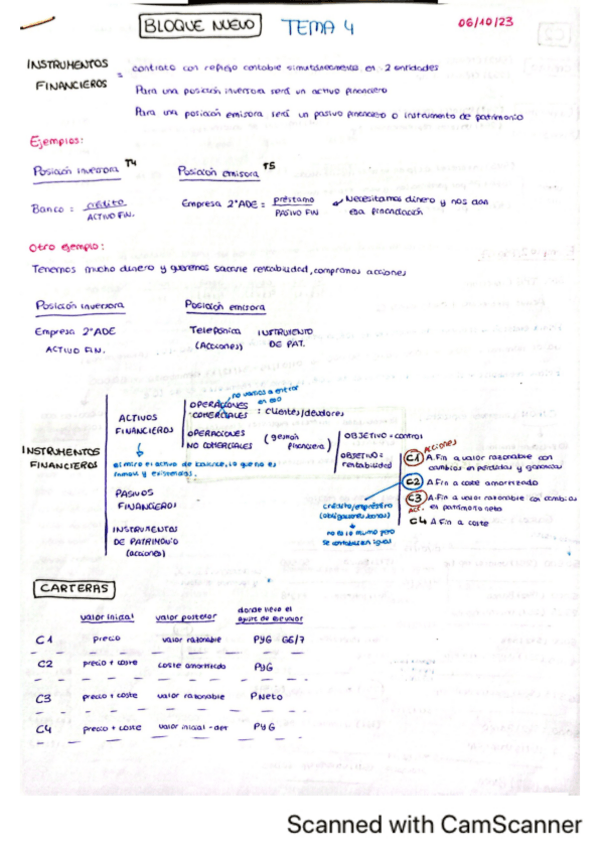 BLOQUE NUEVO TEMA 4 06/10/23
INSTRUMENTOS FINANCIEROS = contrato con reflejo contable simultáneamente en 2 entidades
Para una posición inversora será un activo financiero
Para una posición emisora será un pasivo financiero o instrumento de patrimonio
Ejemplos:
Posición inversora T4 Posición emisora T5
Banco : crédito Empresa 2º ADE : préstamo Necesitamos dinero y nos dan
ACTIVO FIN. PASIVO FIN esa financiación
Otro ejemplo:
Tenemos mucho dinero y queremos sacarle rentabilidad, compramos acciones
Posición inversora Posición emisora
Empresa 2º ADE Telefónica INSTRUMENTO
ACTIVO FIN. (Acciones) DE PAT.
INSTRUMENTOS FINANCIEROS
ACTIVOS FINANCIEROS
no vamos a entrar en eso
OPERACIONES COMERCIALES : clientes/deudores
OPERACIONES NO COMERCIALES (gestión financiera)
OBJETIVO = control
OBJETIVO = rentabilidad
Acciones
C1 A.Fin a valor razonable con cambios en pérdidas y ganancias
C2 A Fin a coste amortizado
C3 A.Fin a valor razonable con cambios en patrimonio neto
Acc.
C4 A Fin a coste
crédito/empréstito
(obligaciones, bonos)
no es lo mismo pero
se contabilizan igual
PASIVOS FINANCIEROS
INSTRUMENTOS DE PATRIMONIO
(acciones)
CARTERAS
valor inicial valor posterior donde llevo el ajuste de el valor
C1 precio valor razonable PYG G6/7
C2 precio + coste coste amortizado PyG
C3 precio + coste valor razonable PNeto
C4 precio + coste valor inicial - det PYG
Scanned with CamScanner